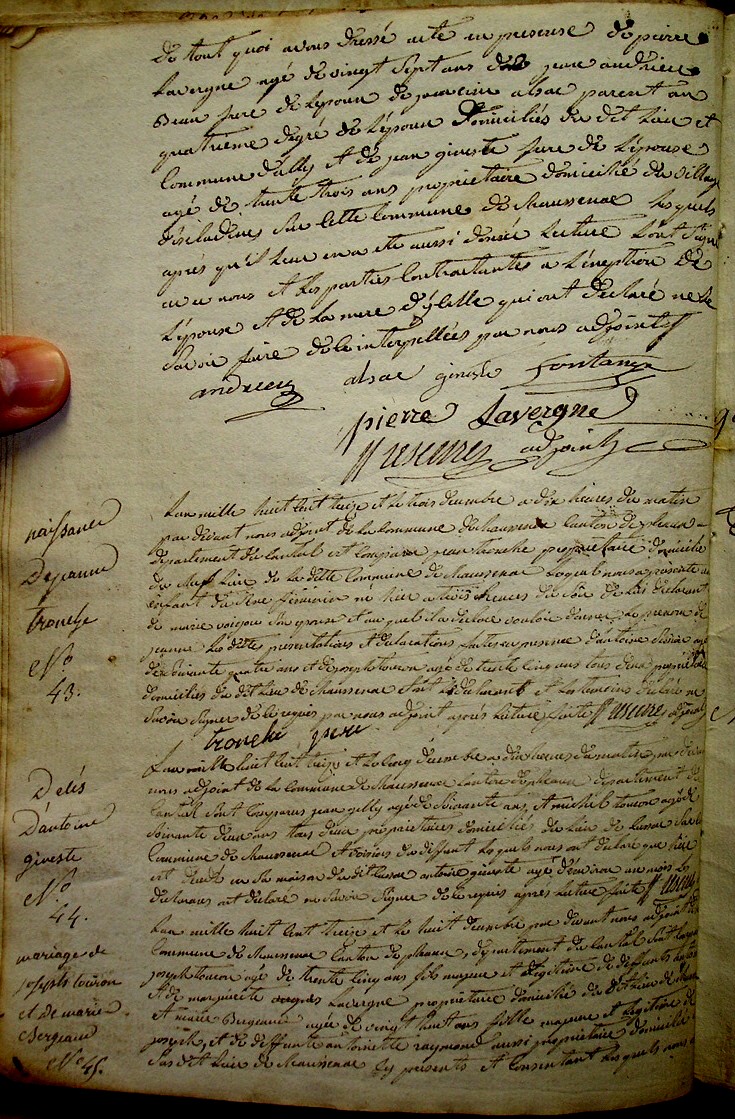 de tout quoi avons dressé acte en presence de pierre
Lavergne agé de vingt Sept ans de jean andrieu
Beau frere de Lepoux de alsac parent au
quatrieme degré de L'épouse Domiciliés du dit Lieu et
Commune d'ally et de jean gineste frere de L'épouse
agé de trente trois ans propriétaire domicilié du village
d'escladines Sur Cette Commune de Chaussenac Lesquels
après qu'il Leur en a ete aussi donnée Lecture L'ont Signé
avec nous et Les parties Contractantes a L'exeption de
L'épouse et de La mere d'ycelle qui ont declaré ne le
Savoir faire de ce interpellées par nous adjoint
andrieu alsac gineste Fontange
pierre Lavergne
adjoint
naissance
De jeanne
tronche
N°
43.
L'an mille huit Cent treize et Le trois decembre a dix heures du matin
par devant nous adjoint de La Commune de Chaussenac Canton de pleaux
departement du Cantal est Comparu jean tronche propriétaire domicilié
du Chef Lieu de La ditte Commune de Chaussenac Lequel nous a présenté un
enfant du Sexe féminin né hier a trois heures du Soir de Lui declarant
de marie Son epouse et auquel il a declaré vouloir donner Le prenom de
jeanne Les dittes présentations et declarations faites en presence d'antoine agé
de Soixante quatre ans et de joseph touron agé de trente Cinq ans tous deux propriétaires
domiciliés du dit Lieu de Chaussenac et ont Le declarant et Les temoins declaré ne
Savoir Signer de Ce requis par nous adjoint après Lecture faite adjoint
tronche pere
Déces
D'antoine
gineste
N°
44.
L'an mille huit Cent treize et Le Cinq decembre a dix heures du matin par devant
nous adjoint de La Commune de Chaussenac Canton de pleaux departement du
Cantal Sont Comparus jean gilly agé de Soixante ans, et michel touron agé de
Soixante deux ans tous deux propriétaires domiciliés du Lieu de Lussac Sur la
Commune de Chaussenac et voisins du deffunt Lesquels nous ont declaré que hier
est décedé en Sa maison du dit Lussac antoine gineste agé d'environ un mois Les
declarants ont declaré ne Savoir Signer de Ce requis après Lecture faite
mariage de
joseph touron
et de marie
Bergeaud
N° 45.
L'an mille huit Cent treize et Le huit decembre par devant nous adjoint de La
Commune de Chaussenac Canton de pleaux, departement du Cantal Sont Comparus
joseph touron agé de trente Cinq ans fils majeur et Legitime de deffunts
et de marguerite Lavergne propriétaire domicilié du dit Lieu de Chaussenac
et marie Bergeaud agée de vingt huit ans fille majeure et Legitime de
joseph, et de deffunte antoinette raymond aussi propriétaire domicilié
du dit Lieu de Chaussenac Cy présents et Consentant Lesquels nous